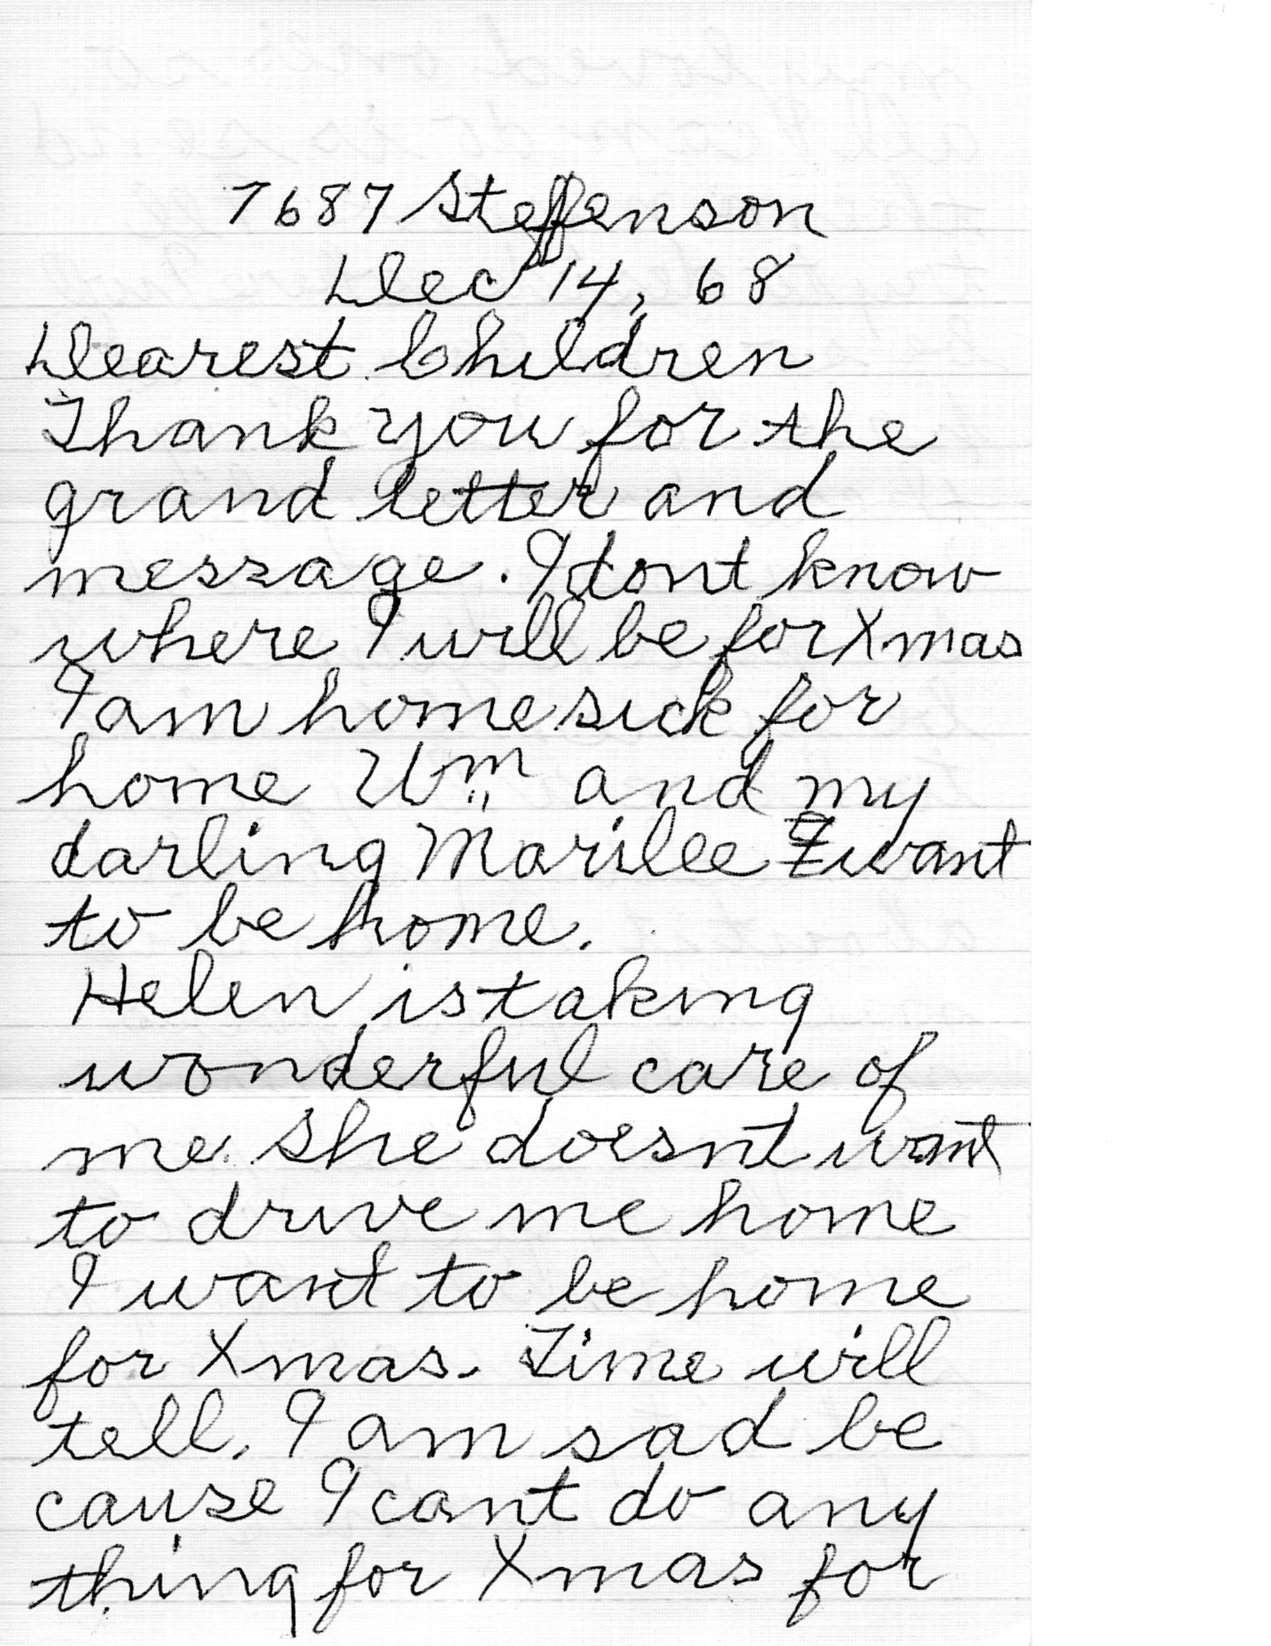 7687 Steffenson
Dec 14, 68
Dearest Children
Thank you for the
grand letter and
message. I dont know
where I will be for Xmas
I am homesick for
home Wm and my
darling Marilee I want
to be home.
Helen is taking
wonderful care of
me. She doesnt want
to drive me home
I want to be home
for Xmas. Time will
tell. I am sad be
cause I cant do any
thing for Xmas for